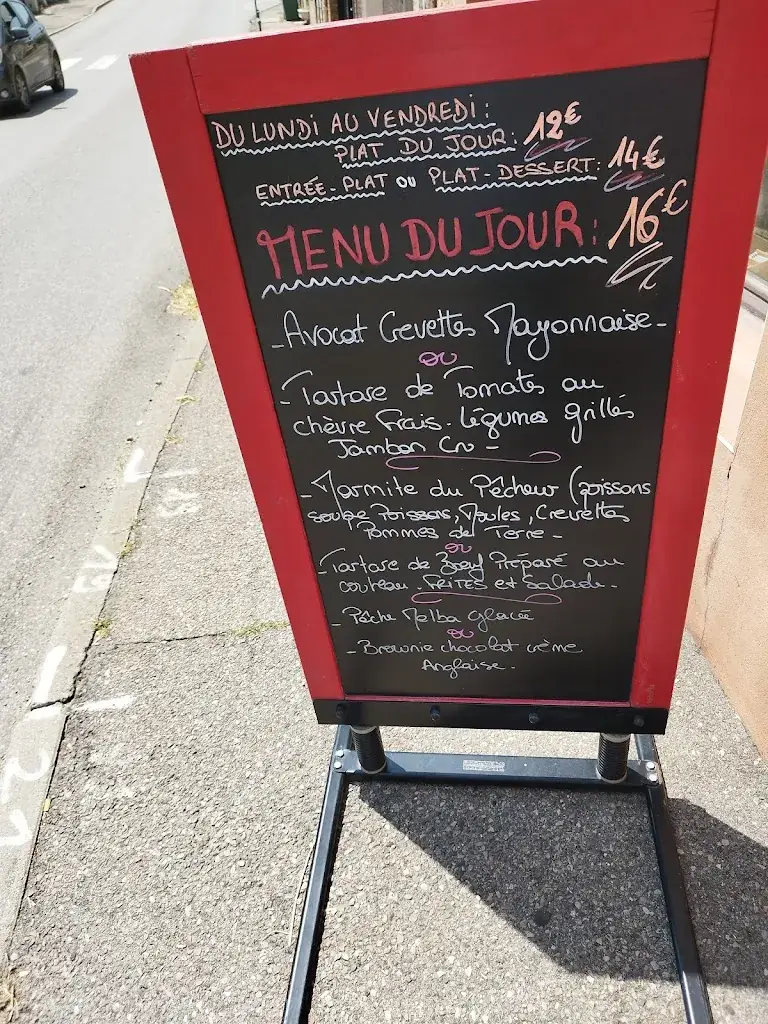 DU LUNDI AU VENDREDI :
PLAT DU JOUR : 12€
ENTRÉE-PLAT OU PLAT-DESSERT : 14€
MENU DU JOUR : 16€
- Avocat Crevettes Mayonnaise -
ou
- Tartare de Tomates au
chèvre Frais. Légumes grillés
Jambon Cru -
- Marmite du Pêcheur (poissons
soupe Poissons, Moules, Crevettes
Pommes de Terre -
ou
- Tartare de Bœuf Préparé au
couteau. FRITES et Salade -
- Pêche Melba glacée
ou
- Brownie chocolat crème
Anglaise -
18
19
21